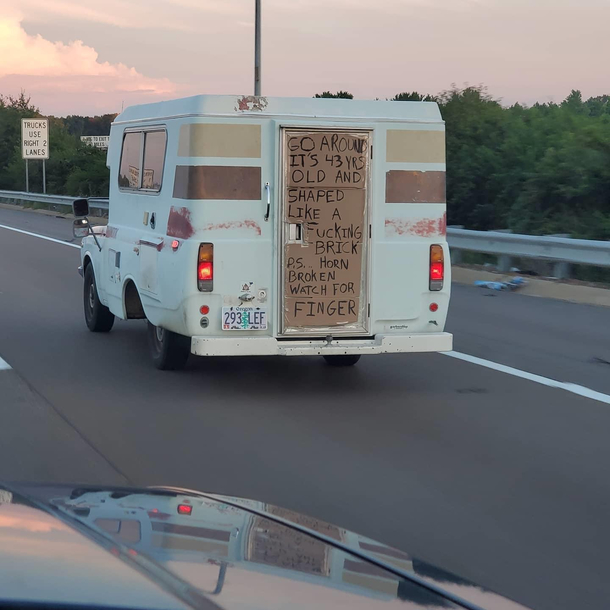 TRUCKS
USE
RIGHT 2
LANES
GO AROUND
IT'S 43 YRS
OLD AND
SHAPED
LIKE A
FUCKING
BRICK
P.S... HORN
BROKEN
WATCH FOR
FINGER
Oregon
293 LEF